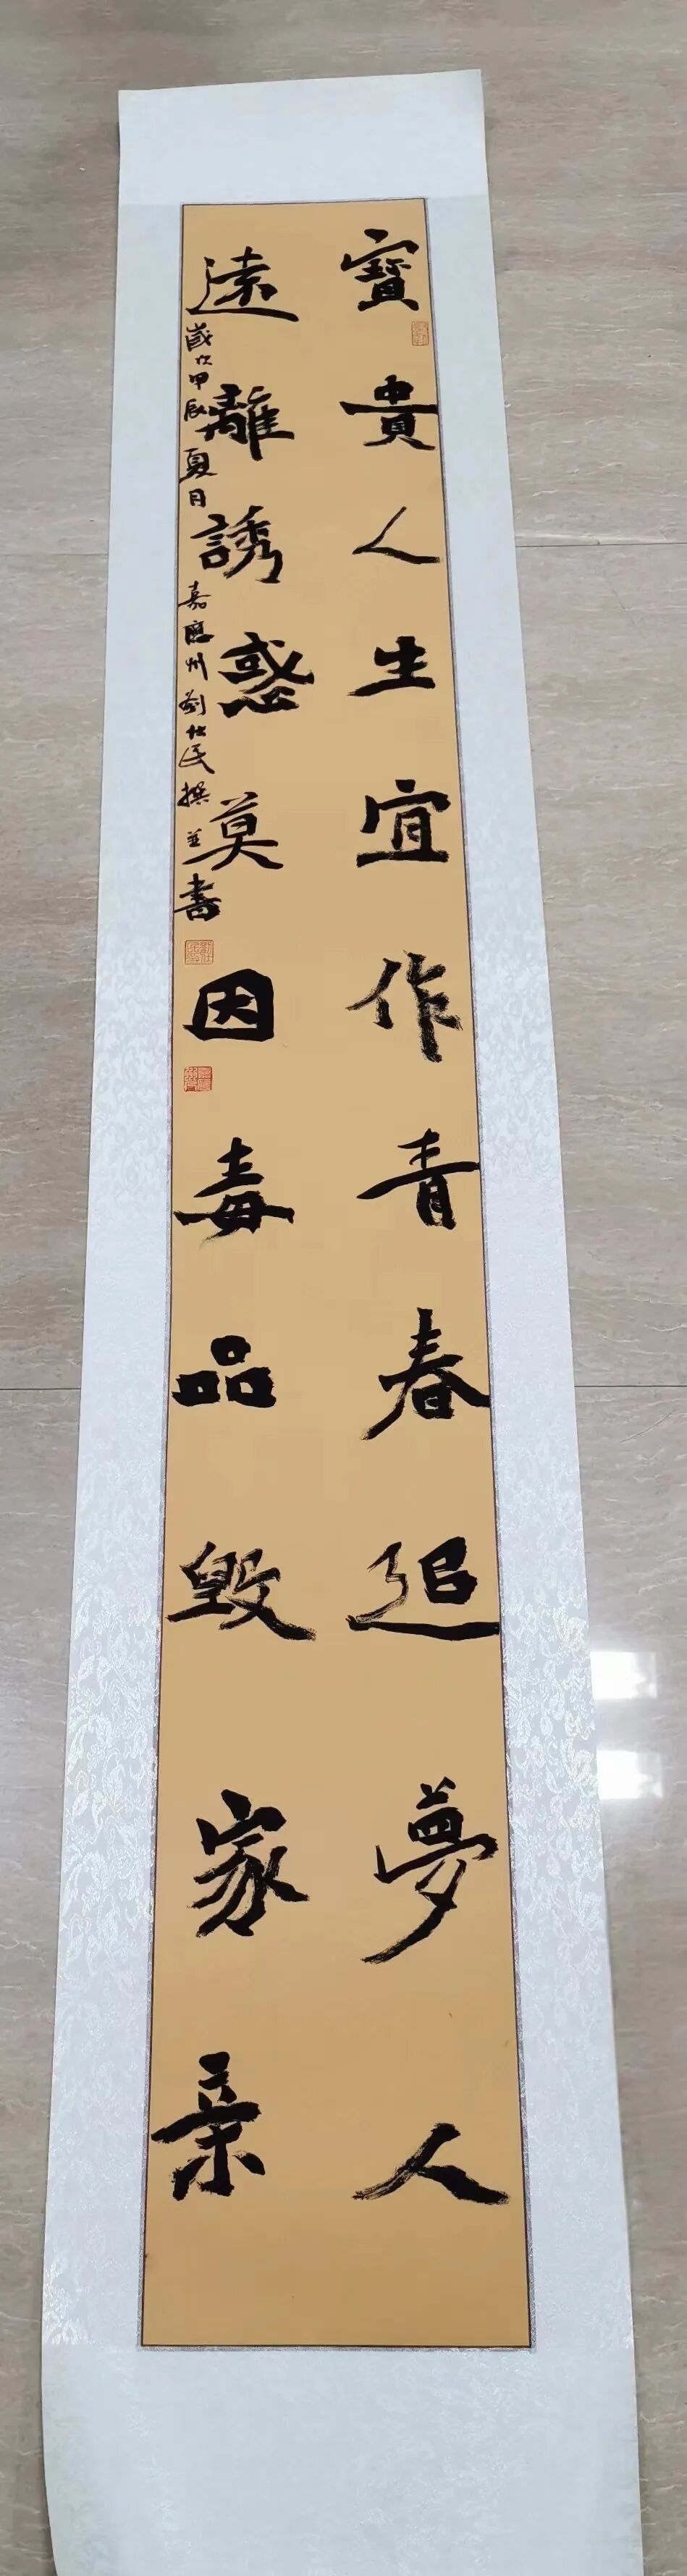 寶貴人生宜作青春追夢人
遠離誘惑莫因毒品毀家亲
歲次甲辰夏月嘉應州劉仕民撰並書